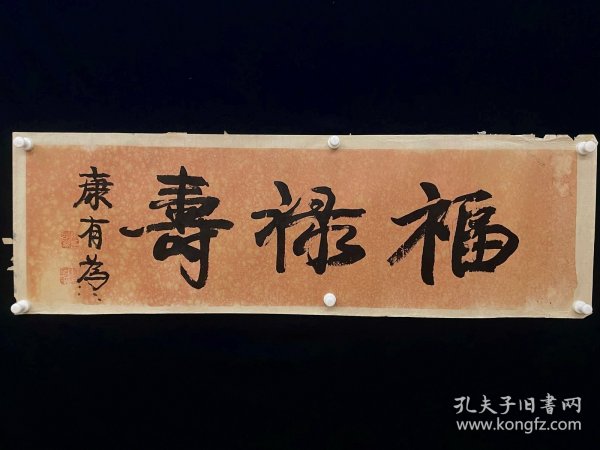 福祿壽
康有為
孔夫子旧書网
www.kongfz.com